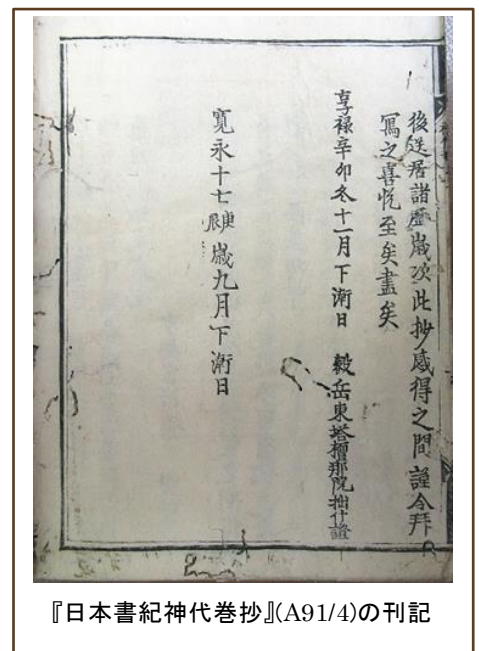 後送居諸歴歳次此抄感得之間謹令拝
寫之喜悦至矣盡矣
享禄辛卯冬十一月下澣日 毅岳東塔檀那院拙什證
寛永十七庚辰歳九月下澣日
『日本書紀神代巻抄』(A91/4)の刊記